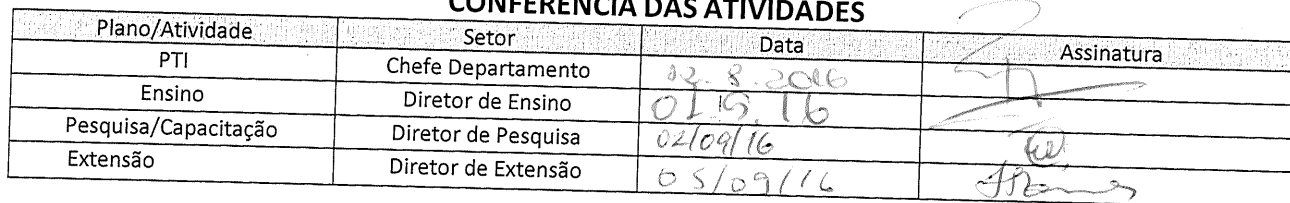 CONFERÊNCIA DAS ATIVIDADES
Plano/Atividade Setor Data Assinatura
PTI Chefe Departamento 12.8.2016
Ensino Diretor de Ensino
Pesquisa/Capacitação Diretor de Pesquisa 02/09/16
Extensão Diretor de Extensão 05/09/16